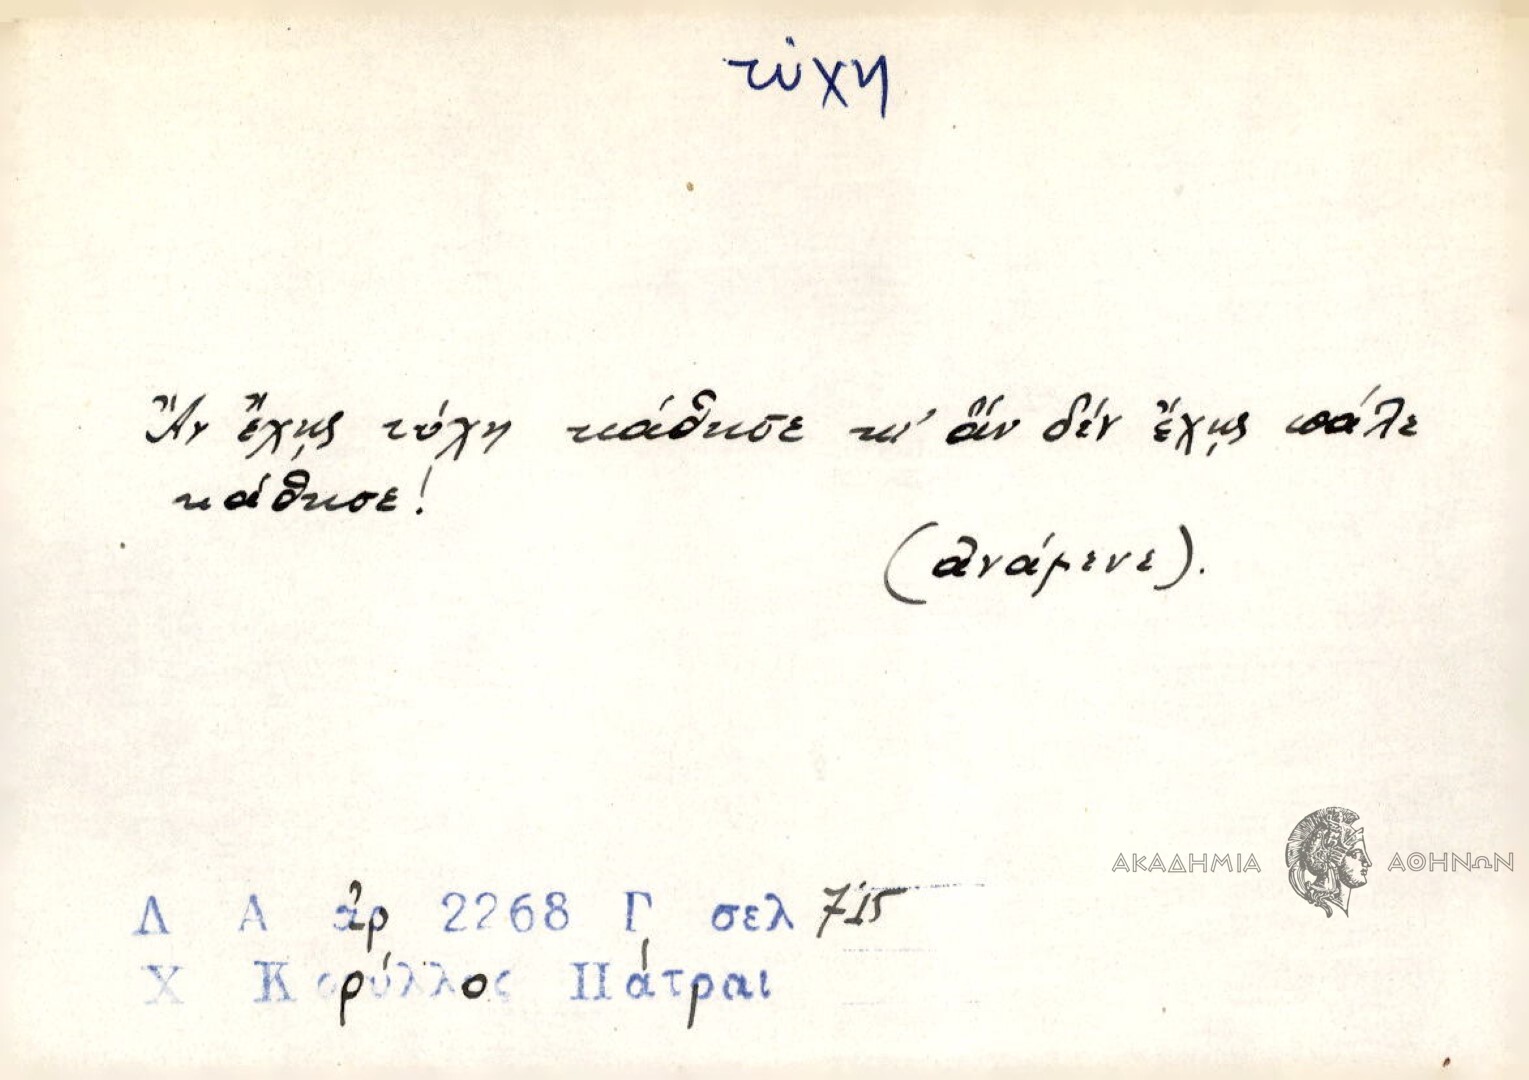 τύχη
Ἂν ἔχῃς τύχη κάθησε κι' ἂν δέν ἔχῃς πάλε
κάθησε!
(ἀνάμενε).
ΑΚΑΔΗΜΙΑ ΑΘΗΝΩΝ
Λ Α ἀρ 2268 Γ σελ 715
Χ Κορύλλος Πάτραι